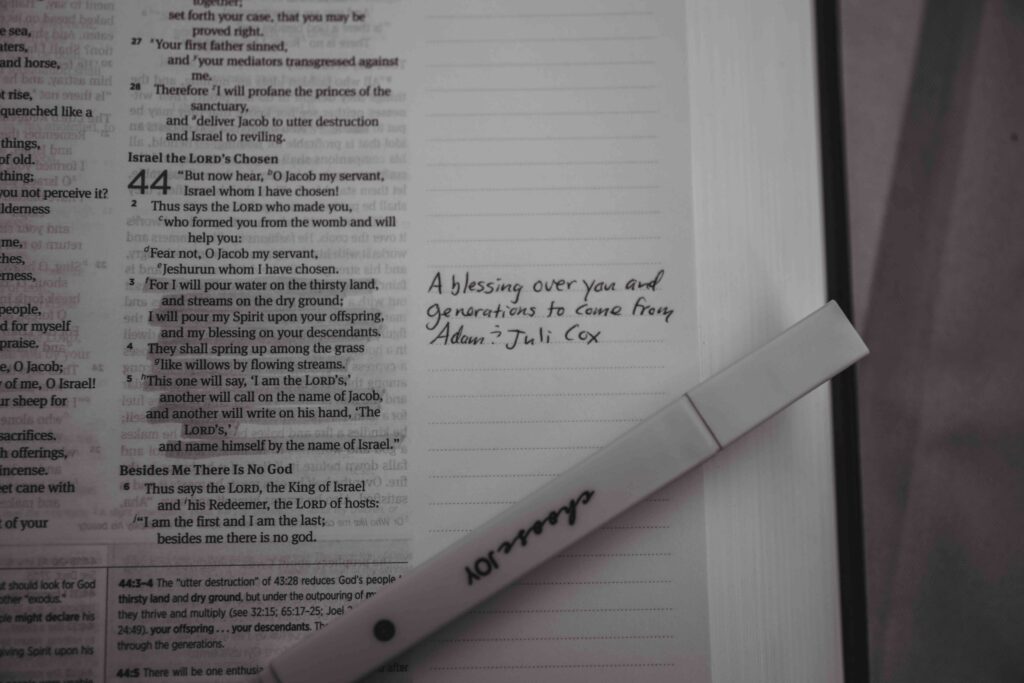 e sea,
aters,
and horse,
t rise,
quenched like a
things,
of old.
thing;
you not perceive it?
lderness
me,
ches,
erness,
people,
d for myself
praise.
e, O Jacob;
of me, O Israel!
ur sheep for
sacrifices.
h offerings,
incense.
eet cane with
t of your
ut should look for God
other "exodus."
ple might declare his
giving Spirit upon his
together;
set forth your case, that you may be
proved right.
27 Your first father sinned,
and your mediators transgressed against
me.
28 Therefore I will profane the princes of the
sanctuary,
and deliver Jacob to utter destruction
and Israel to reviling.
Israel the LORD's Chosen
44 "But now hear, b O Jacob my servant,
Israel whom I have chosen!
2 Thus says the LORD who made you,
c who formed you from the womb and will
help you:
d Fear not, O Jacob my servant,
e Jeshurun whom I have chosen.
3 f For I will pour water on the thirsty land,
and streams on the dry ground;
I will pour my Spirit upon your offspring,
and my blessing on your descendants.
4 They shall spring up among the grass
g like willows by flowing streams.
5 h This one will say, 'I am the LORD's,'
another will call on the name of Jacob,
and another will write on his hand, 'The
LORD's,'
and name himself by the name of Israel."
Besides Me There Is No God
6 Thus says the LORD, the King of Israel
and i his Redeemer, the LORD of hosts:
j "I am the first and I am the last;
besides me there is no god.
44:3–4 The "utter destruction" of 43:28 reduces God's people
thirsty land and dry ground, but under the outpouring of
they thrive and multiply (see 32:15; 65:17–25; Joel
24:49). your offspring . . . your descendants.
through the generations.
44:5 There will be one
after
A blessing over you and
generations to come from
Adam & Juli Cox
choose JOY